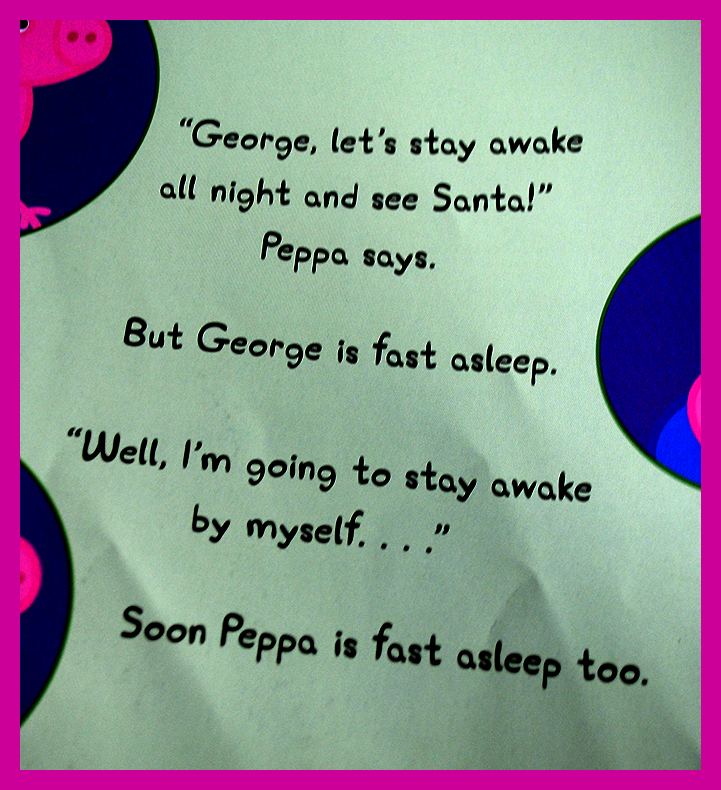 “George, let’s stay awake
all night and see Santa!”
Peppa says.
But George is fast asleep.
“Well, I’m going to stay awake
by myself. . . .”
Soon Peppa is fast asleep too.